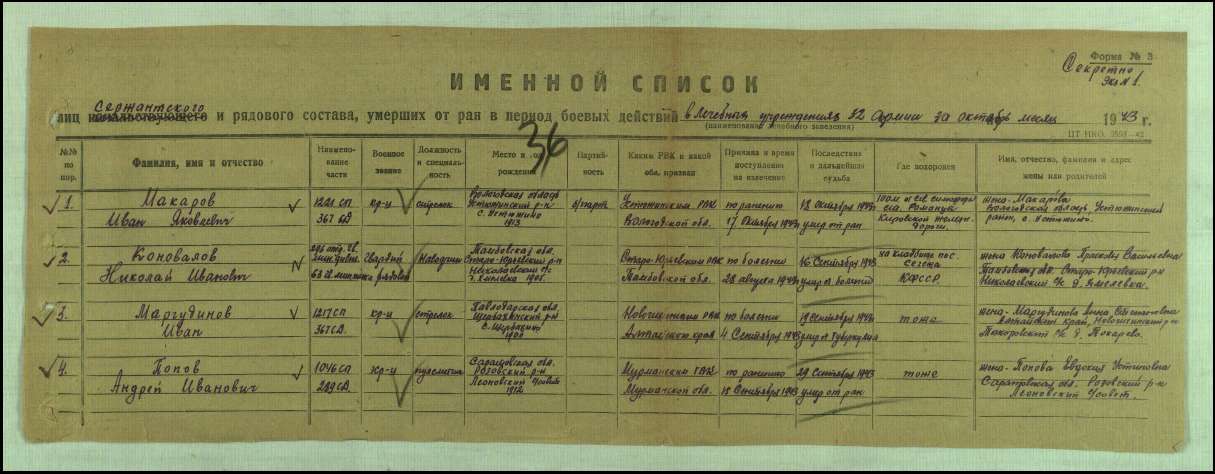 Форма № 3
Секретно
Экз №1.
ИМЕННОЙ СПИСОК
Сержантского
лиц начальствующего и рядового состава, умерших от ран в период боевых действий в лечебных учреждениях 32 Армии за октябрь месяц 1943 г.
(наименование лечебного заведения)
36
№№ по пор.
Фамилия, имя и отчество
Наименование части
Военное звание
Должность и специальность
Место и рождения
Партийность
Каким РВК и какой обл. призван
Причина и время поступления на излечение
Последствия и дальнейшая судьба
Где похоронен
Имя, отчество, фамилия и адрес жены или родителей
1. Макаров
Иван Яковлевич
1221 сп
367 сд
кр-ц
стрелок
Вологодская область
Устюжинский р-н
с. Устюжино
1913
б/парт
Устюжинским РВК
Вологодской обл.
по ранению
17 Октября 1943
18 Октября 1943г.
умер от ран
ст. Романцы
Кировской желез.
дороги.
жена- Макарова
Вологодская область Устюжинский
район, с. Устюжино.
2. Коновалов
Николай Иванович
рядовой
Наводчик
Тамбовская обл.
Старо-Юрьевский р-н
Николаевский с/с
1905.
Старо-Юрьевским РВК
Тамбовской обл.
по болезни
28 августа 1943
16 Сентября 1943
умер от болезни
на кладбище пос.
Сегежа
КФССР
жена Коновалова Прасковья Васильевна
Тамбовская обл. Старо-Юрьевский р-н
Николаевский с/с
3. Маргудинов
Иван
1217 СП
367 СД.
кр-ц
стрелок
Павлодарская обл.
Щербакинский р-н
с. Щербакты
1900
РВК
Алтайского края
по болезни
4 Сентября 1943
19 Сентября 1943
умер от туберкулеза
тоже
жена- Маргудинова Анна Степановна
Алтайский край,
с/с д. Токарево.
4. Попов
Андрей Иванович
1046 СП
289 СД.
кр-ц
пулеметчик
Саратовская обл.
р-н
Леоновский с/совет
1912
Мурманским ГВК
Мурманской обл.
по ранению
15 Сентября 1943
29 Сентября 1943
умер от ран
тоже
жена- Попова Евдокия Устиновна
Саратовская обл. р-н
Леоновский с/совет.